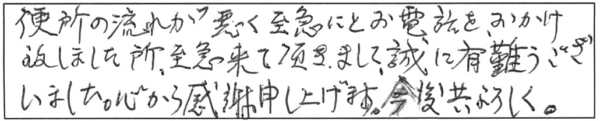 便所の流れが悪く至急にとお電話を、おかけ
致しました所、至急来て頂きまして、誠に有難うござ
いました。心から感謝申し上げます。今後共よろしく。